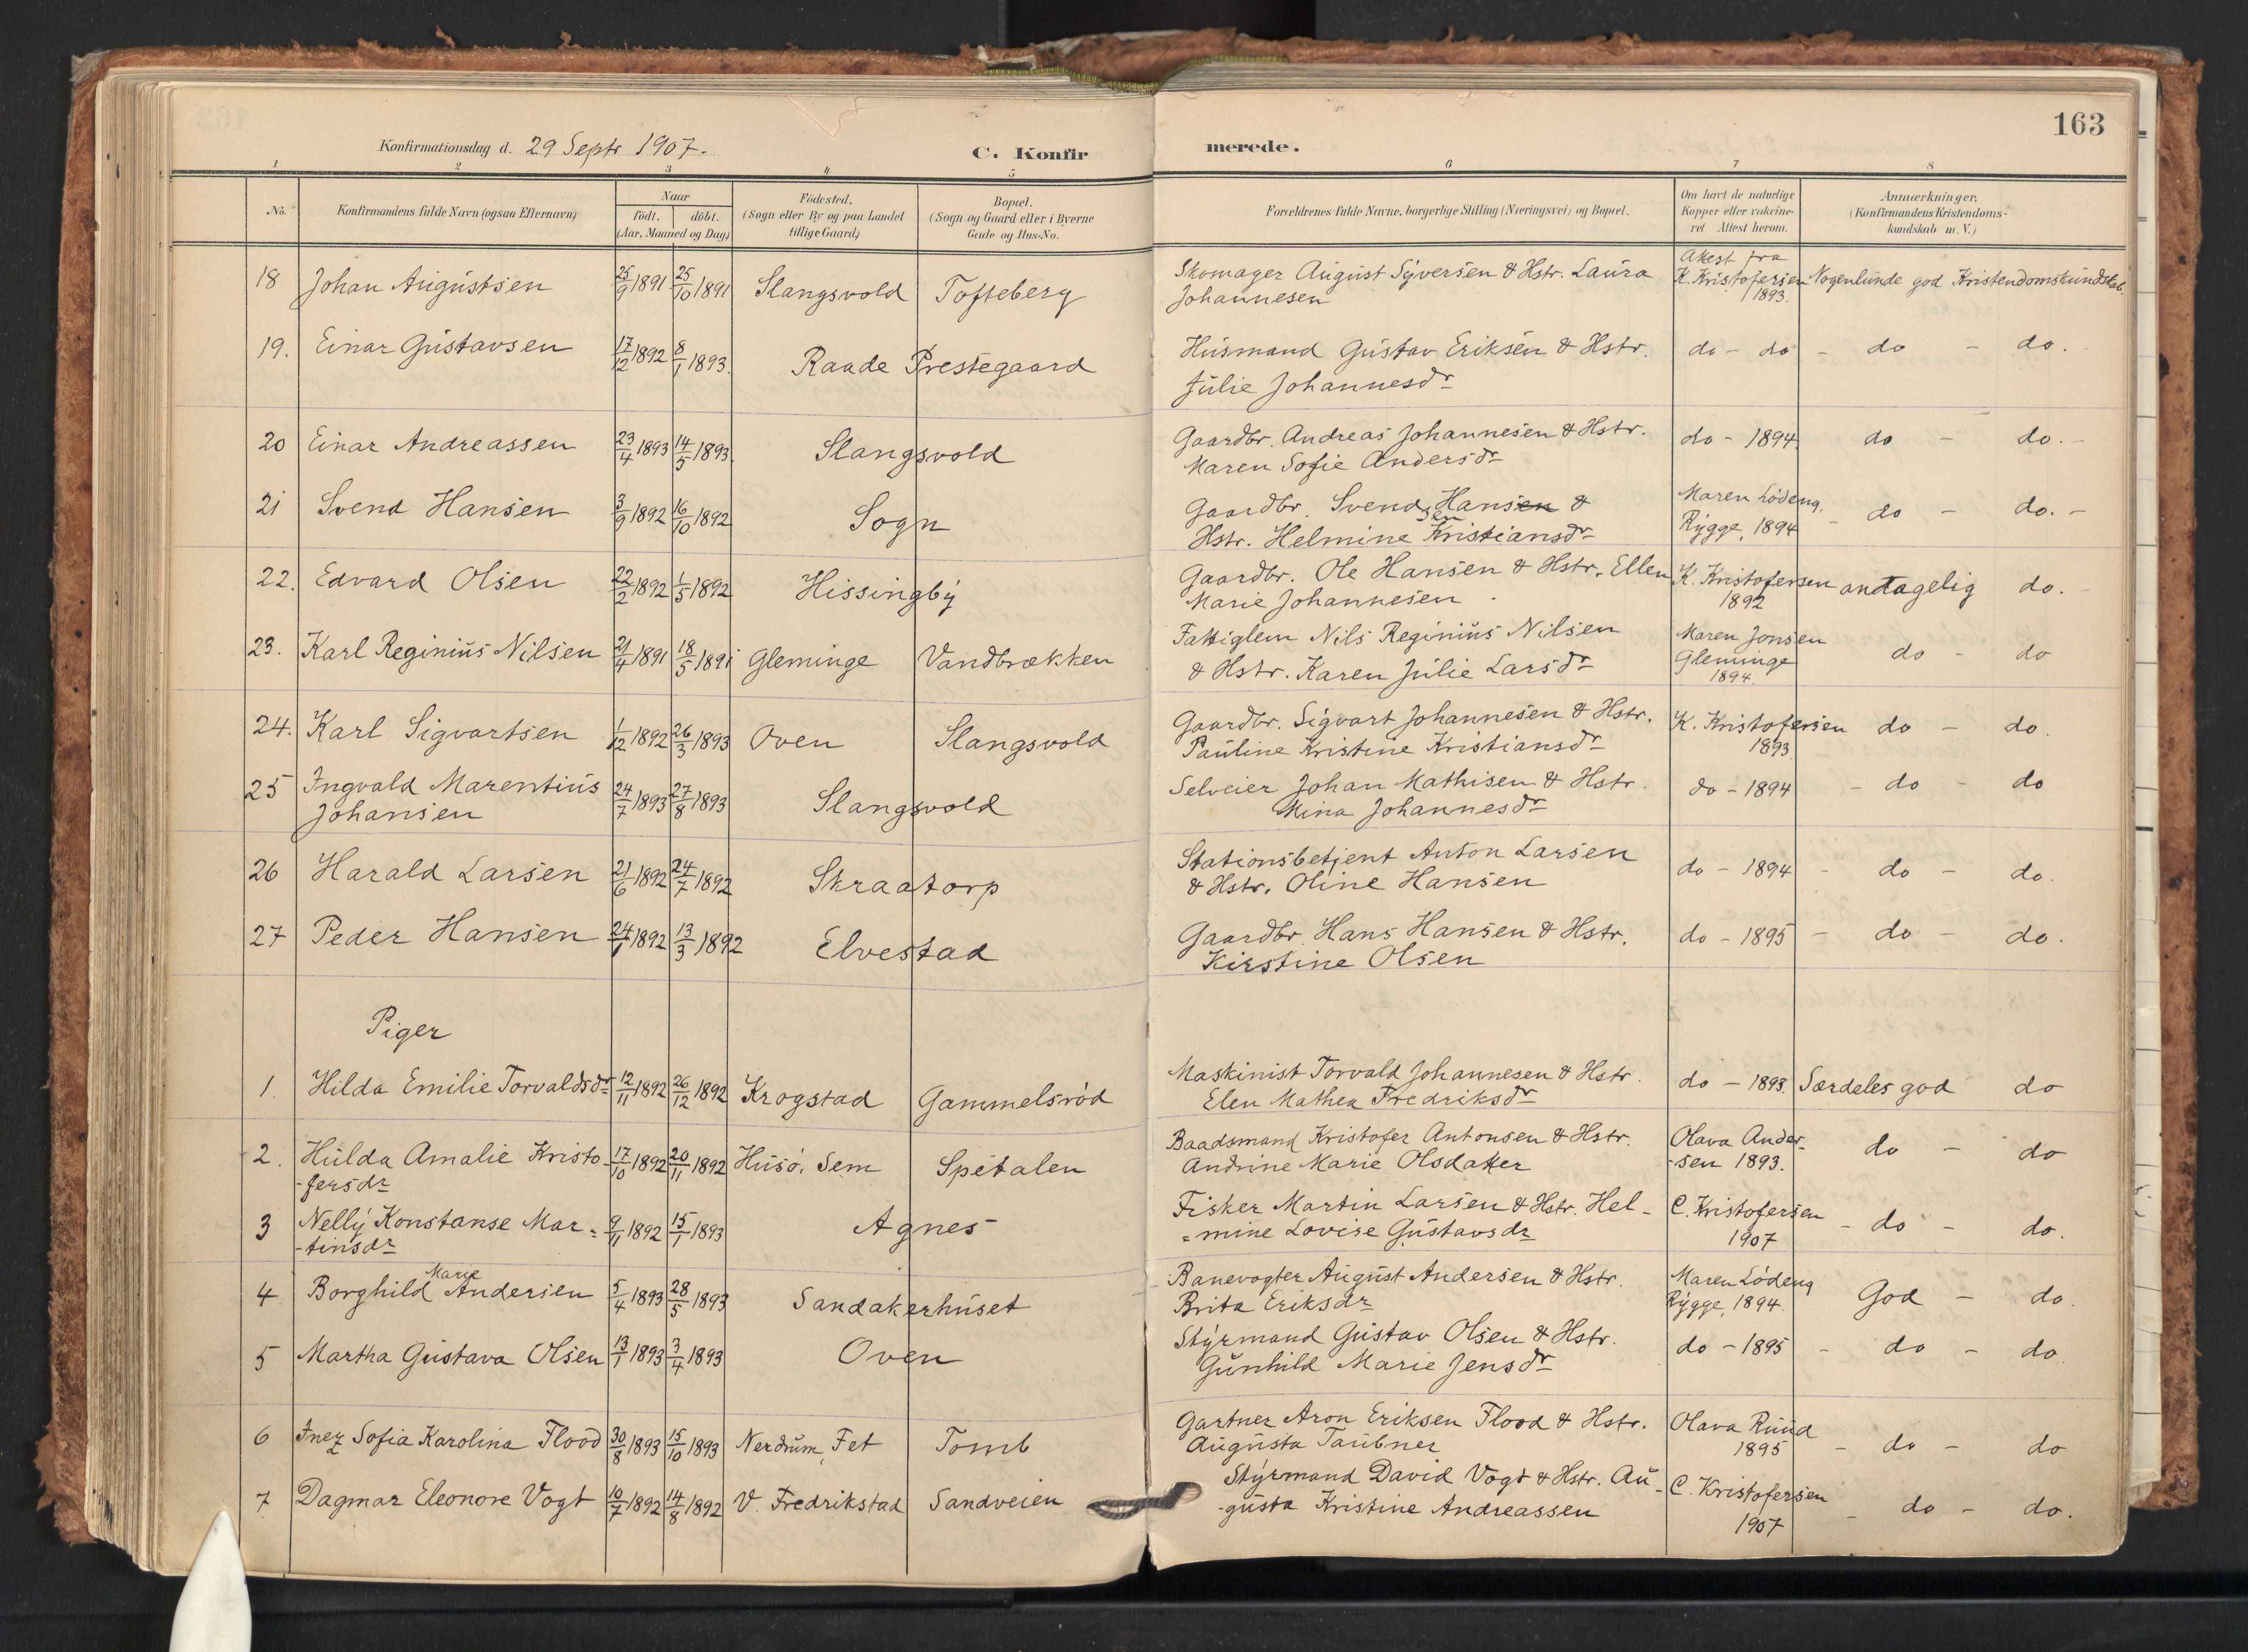 163
Konfirmationsdag d. 29 Septr 1907.
C. Konfirmerede.
1 2 3 4 5 6 7 8
No.
Konfirmandens fulde Navn (ogsaa Efternavn)
Naar
födt. döbt.
(Aar, Maaned og Dag)
Födested.
(Sogn eller By og paa Landet
tillige Gaard)
Bopæl.
(Sogn og Gaard eller i Byerne
Gade og Hus-No.
Forældrenes fulde Navne, borgerlige Stilling (Næringsvei) og Bopæl.
Om havt de naturlige
Kopper eller vakcine-
ret Attest herom.
Anmærkninger.
(Konfirmandens Kristendoms-
kundskab m. V.)
18 Johan Augustsen 25/9 1891 25/10 1891 Slangsvold Tofteberg Skomager August Syversen & Hstr. Laura
Johannesen
Atest fra
K. Kristofersen
1893.
Nogenlunde god Kristendomskundskab.
19. Einar Gustavsen 17/12 1892 8/1 1893. Raade Prestegaard Husmand Gustav Eriksen & Hstr.
Julie Johannesdr
do - do - do - do.
20 Einar Andreassen 23/4 1893 14/5 1893. Slangsvold Gaardbr. Andreas Johannesen & Hstr.
Maren Sofie Andersdr
do - 1894. do - do. -
21 Svend Hansen 3/9 1892 16/10 1892 Sogn Gaardbr. Svendsen Hansen &
Hstr. Helmine Kristiansdr
Maren Lödeng,
Rygge, 1894
- do - do. -
22. Edvard Olsen 22/2 1892 1/5 1892 Hissingby Gaardbr. Ole Hansen & Hstr. Ellen
Marie Johannesen
K. Kristofersen
1892
antagelig do. -
23. Karl Reginius Nilsen 21/4 1891 18/5 1891 Gleminge Vandbrækken Fattiglem Nils Reginius Nilsen
& Hstr. Karen Julie Larsdr
Maren Jonsen
Gleminge
1894.
do - do
24. Karl Sigvartsen 1/12 1892 26/3 1893 Oven Slangsvold Gaardbr. Sigvart Johannesen & Hstr.
Pauline Kristine Kristiansdr
K. Kristofersen
1893.
do - do.
25 Ingvald Marentius
Johansen
24/7 1893 27/8 1893 Slangsvold Selveier Johan Mathisen & Hstr.
Mina Johannesdr
do - 1894 - do - do
26 Harald Larsen 21/6 1892 24/7 1892 Skraatorp Stationsbetjent Anton Larsen
& Hstr. Oline Hansen
do - 1894 - do - do.
27 Peder Hansen 24/1 1892 13/3 1892 Elvestad Gaardbr. Hans Hansen & Hstr.
Kirstine Olsen
do - 1895 - do - do.
Piger
1. Hilda Emilie Torvaldsdr 12/11 1892 26/12 1892 Krogstad Gammelsröd Maskinist Torvald Johannesen & Hstr.
Elen Mathea Fredriksdr
do - 1893. Særdeles god do
2. Hulda Amalie Kristo-
-fersdr
17/10 1892 20/11 1892 Husö, Sem Spetalen Baadsmand Kristofer Antonsen & Hstr.
Andrine Marie Olsdatter
Olava Ander-
-sen 1893.
do - do
3 Nelly Konstanse Mar=
-tinsdr
9/11 1892 15/1 1893 Agnes Fisker Martin Larsen & Hstr. Hel-
=mine Lovise Gustavsdr
C. Kristofersen
1907
- do - do.
4 Borghild Marie Andersen 5/4 1893 28/5 1893 Sandakerhuset Banevogter August Andersen & Hstr.
Brita Eriksdr
Maren Lödeng
Rygge, 1894.
God - do.
5 Martha Gustava Olsen 13/1 1893 3/4 1893 Oven Styrmand Gustav Olsen & Hstr.
Gunhild Marie Jensdr
do - 1895 - do - do.
6 Inez Sofia Karolina Flood 30/8 1893 15/10 1893 Nerdrum, Fet Tomb Gartner Aron Eriksen Flood & Hstr.
Augusta Taubner
Olava Ruud
1895
- do - do
7 Dagmar Eleonore Vogt 10/7 1892 14/8 1892 V. Fredrikstad Sandveien Styrmand David Vogt & Hstr. Au-
-gusta Kristine Andreassen
C. Kristofersen
1907
- do - do.